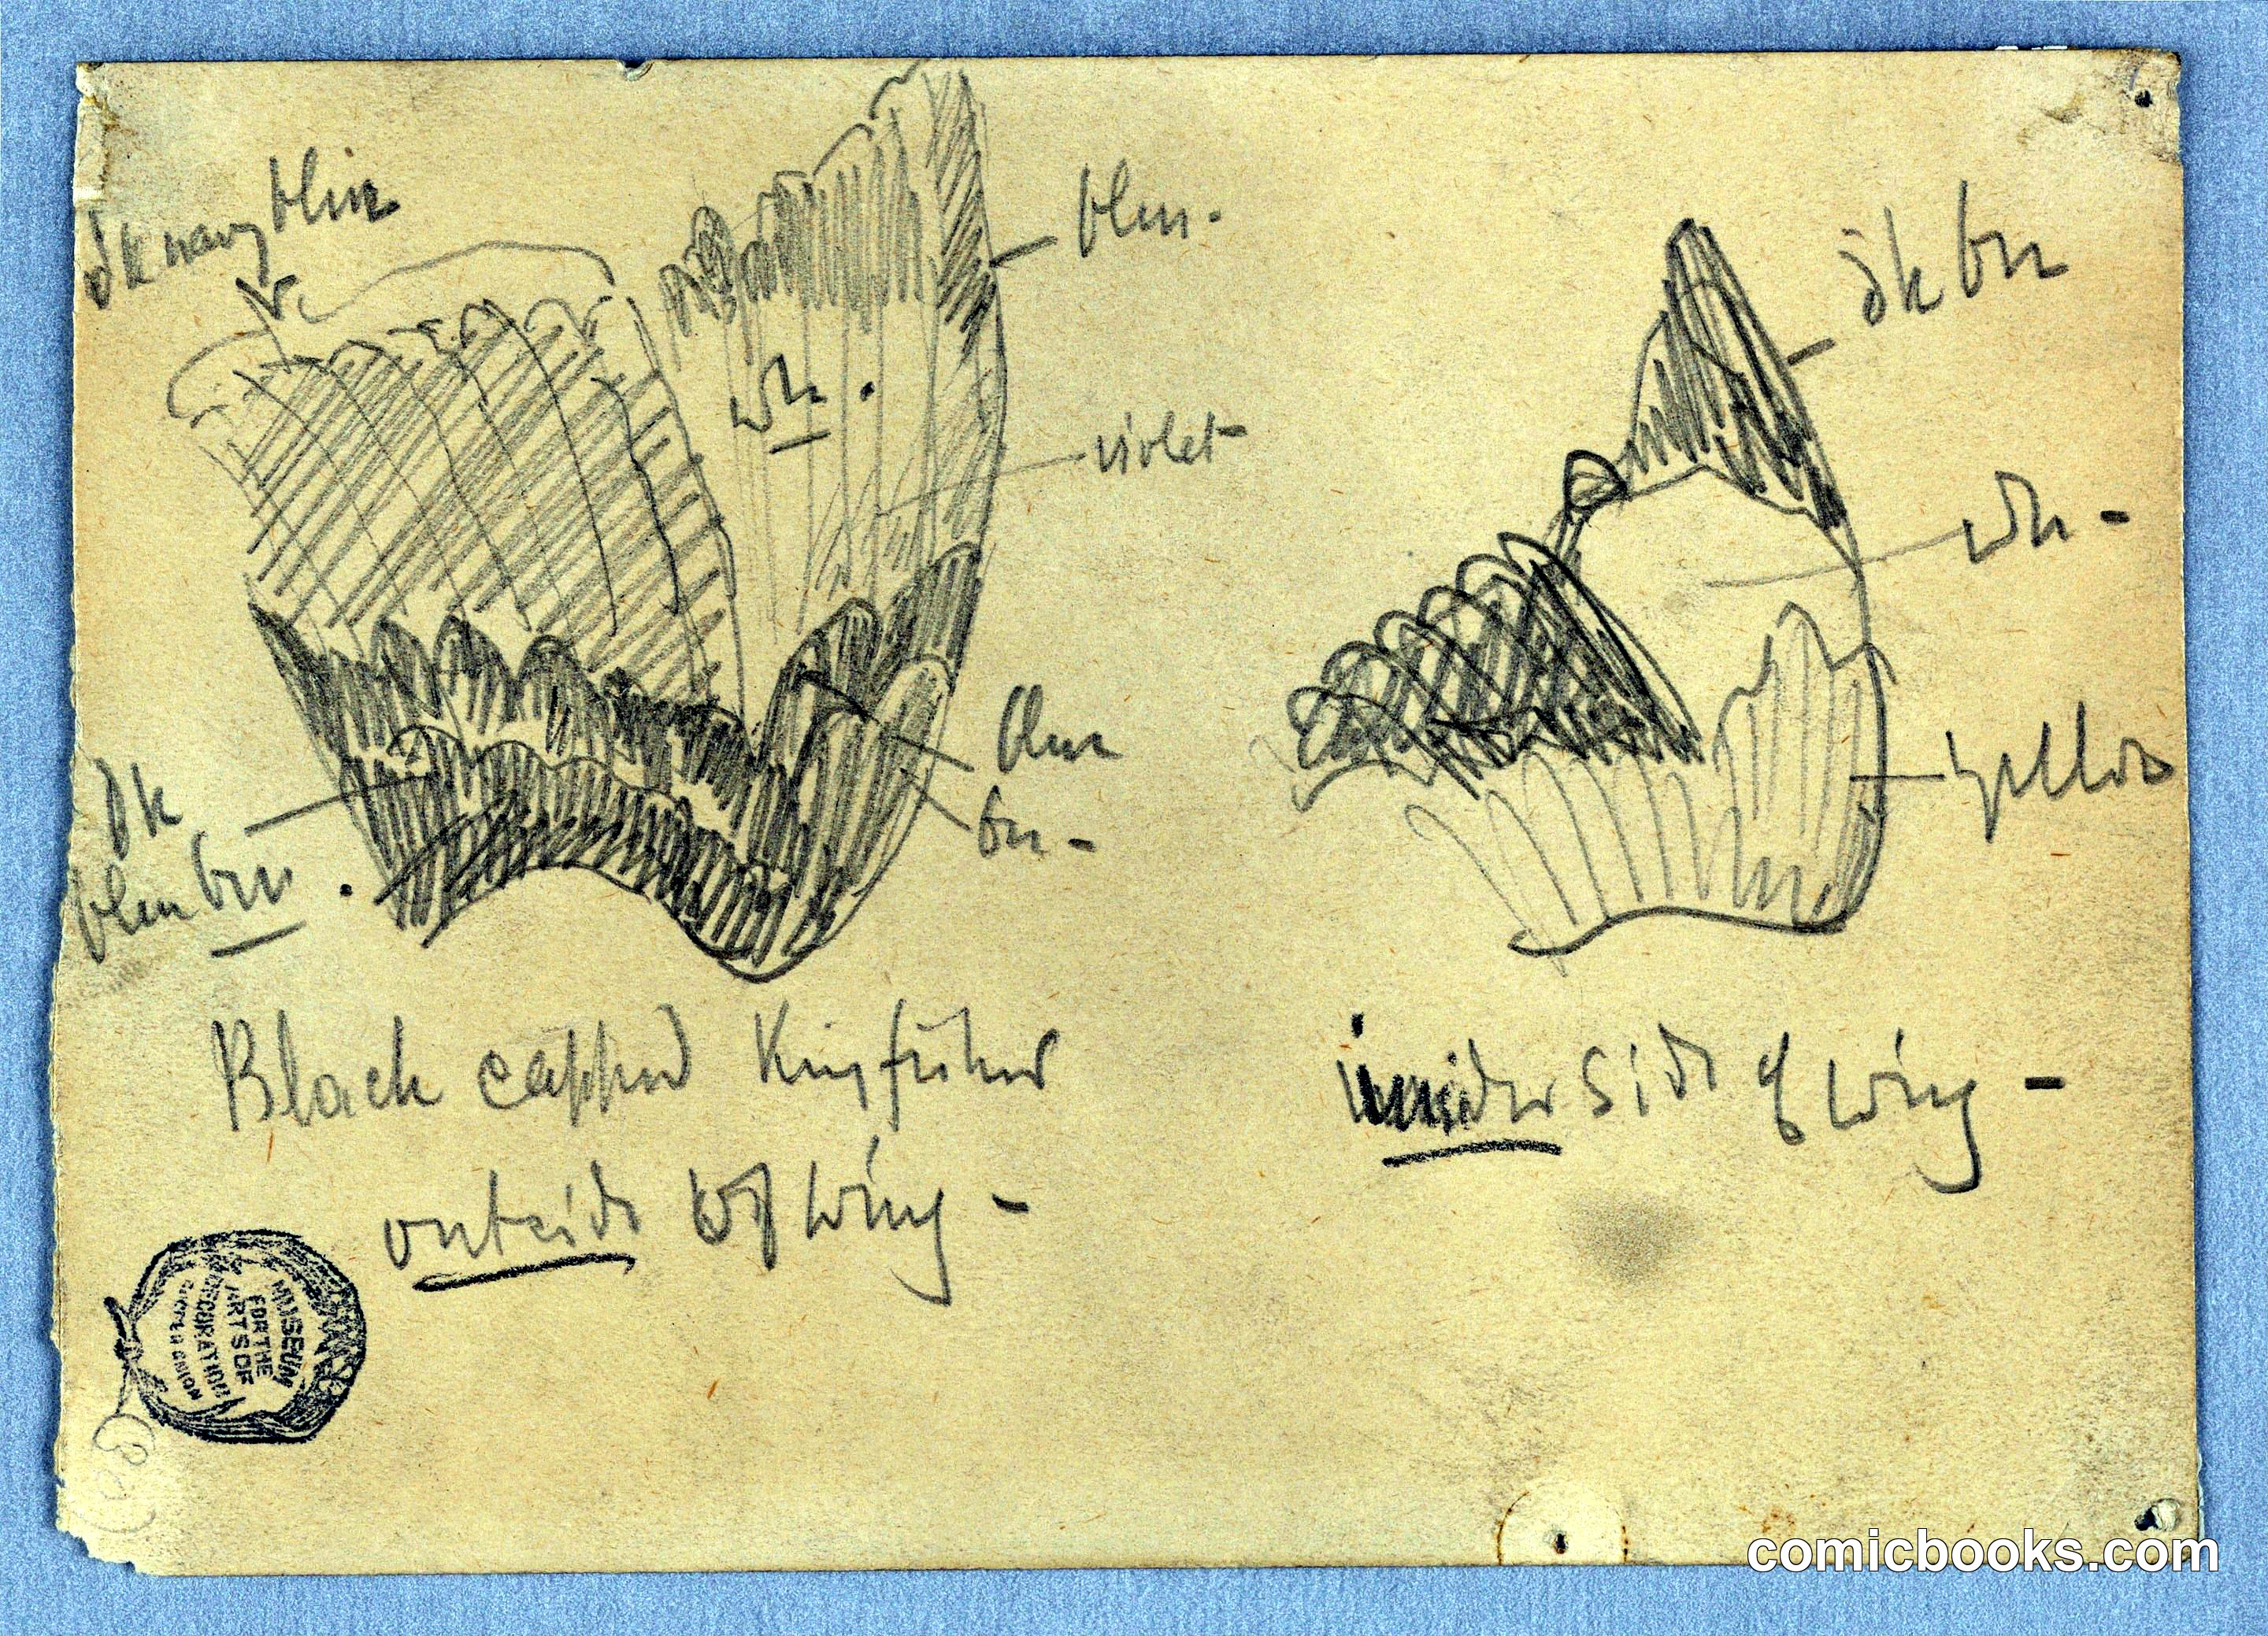 dk navy blue
blu.
wh.
violet
blue
brn -
dk
blue brn.
Black capped Kingfisher
outside of wing -
dk brn
wh -
yellow
side of wing -
MUSEUM
FOR THE
ARTS OF
DECORATION
COOPER UNION
comicbooks.com